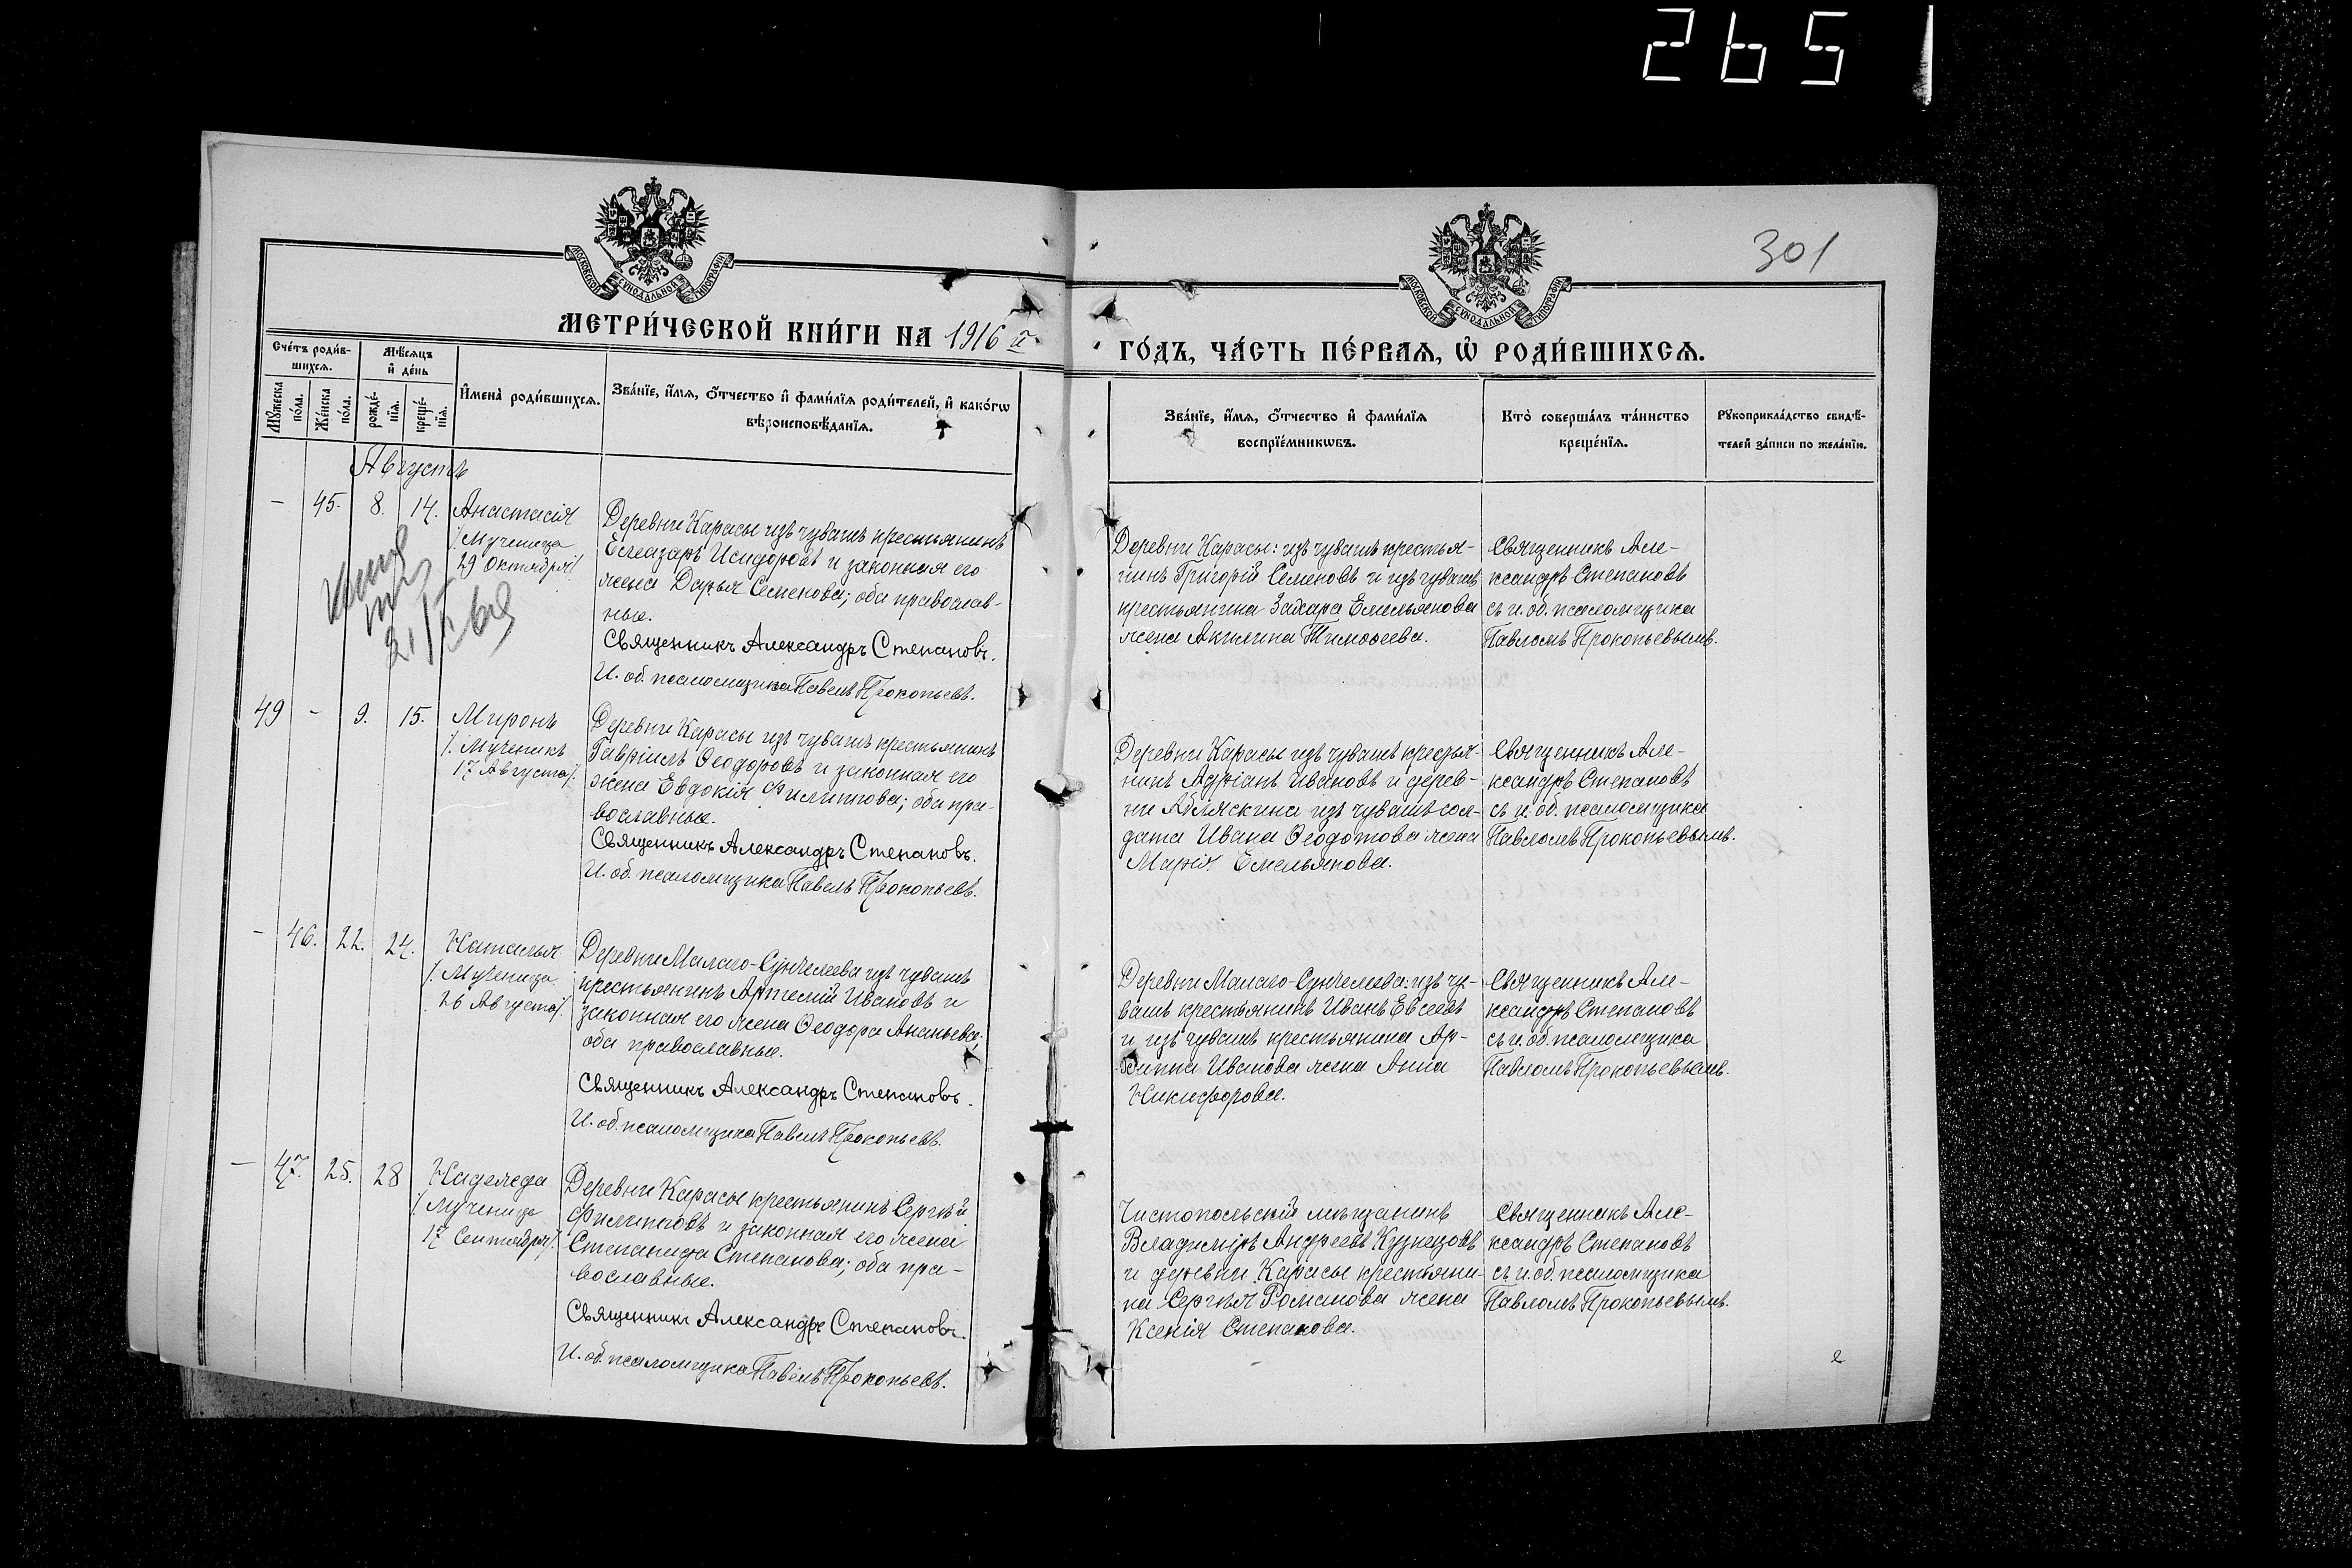 265
301
МОСКОВСКОЙ СУНОДАЛЬНОЙ ТИПОГРАФІИ
МОСКОВСКОЙ СУНОДАЛЬНОЙ ТИПОГРАФІИ
МЕТРИ́ЧЕСКОЙ КНИ́ГИ НА 1916 й
ГО́ДЪ, ЧА́СТЬ ПЕ́РВАѦ, Ѡ҆ РОДИ́ВШИХСѦ.
Сче́тъ роди́в-
шихсѧ.
Мѣ́сѧцъ
и҆ де́нь
Мꙋ́жеска
по́ла.
Же́нска
по́ла.
рожде́-
нїѧ.
креще́-
нїѧ.
И҆мена̀ роди́вшихсѧ.
Зва́нїе, и҆́мѧ, ѻ҆́тчество и҆ фами́лїѧ роди́телей, и҆ како́гѡ
вѣроисповѣ́данїѧ.
Зва́нїе, и҆́мѧ, ѻ҆́тчество и҆ фами́лїѧ
воспрїе́мникѡвъ.
Кто̀ соверша́лъ та́инство
креще́нїѧ.
Рꙋкоприкла́дство свидѣ́-
телей за́писи по жела́нїю.
Августъ
- 45. 8. 14. Анастасія
/Мученица
29 Октября/.
Деревни Карасы изъ чувашъ крестьянинъ
Елеазаръ Исидоровъ и законная его
жена Дарья Семенова; оба православ-
ные.
Священникъ Александръ Степановъ.
И. об. псаломщика Павелъ Прокопьевъ.
Деревни Карасы: изъ чувашъ крестья-
нинъ Григорій Семеновъ и изъ чувашъ
крестьянина Захара Емельянова
жена Акилина Тимоѳеева.
Священникъ Але-
ксандръ Степановъ
съ и. об. псаломщика
Павломъ Прокопьевымъ.
49 - 9. 15. Миронъ
/. Мученикъ
17 Августа/.
Деревни Карасы изъ чувашъ крестьянинъ
Гавріилъ Ѳеодоровъ и законная его
жена Евдокія Филиппова; оба пра-
вославные.
Священникъ Александръ Степановъ.
И. об. псаломщика Павелъ Прокопьевъ.
Деревни Карасы изъ чувашъ крестья-
нинъ Адріанъ Ивановъ и дерев-
ни Абляскина изъ чувашъ сол-
дата Ивана Ѳеодотова жена
Марія Емельянова.
Священникъ Але-
ксандръ Степановъ
съ и. об. псаломщика
Павломъ Прокопьевымъ.
- 46. 22. 24. Наталья
/. Мученица
26 Августа/.
Деревни Малаго-Сунчелеева изъ чувашъ
крестьянинъ Артемій Ивановъ и
законная его жена Ѳеодора Ананьева;
оба православные.
Священникъ Александръ Степановъ.
И. об. псаломщика Павелъ Прокопьевъ.
Деревни Малаго-Сунчелеева: изъ чу-
вашъ крестьянинъ Иванъ Евсеевъ
и изъ чувашъ крестьянина Ар-
Иванова жена Анна
Никифорова.
Священникъ Але-
ксандръ Степановъ
съ и. об. псаломщика
Павломъ Прокопьевымъ.
- 47. 25. 28 Надежда
/Мученица
17 Сентября/.
Деревни Карасы крестьянинъ Сергѣй
Филипповъ и законная его жена
Степанида Степанова; оба пра-
вославные.
Священникъ Александръ Степановъ.
И. об. псаломщика Павелъ Прокопьевъ.
Чистопольскій мѣщанинъ
Владиміръ Андреевъ Кузнецовъ
и деревни Карасы крестьяни-
на Сергѣя Романова жена
Ксенія Степанова.
Священникъ Але-
ксандръ Степановъ
съ и. об. псаломщика
Павломъ Прокопьевымъ.